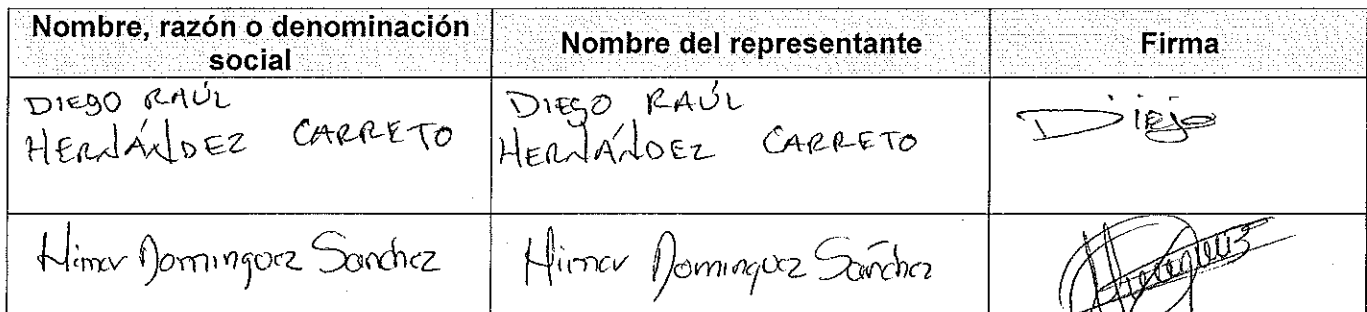 Nombre, razón o denominación
social
Nombre del representante
Firma
DIEGO RAÚL
HERNÁNDEZ CARRETO
DIEGO RAÚL
HERNÁNDEZ CARRETO
Diego
Himer Dominguez Sanchez
Himer Dominguez Sánchez